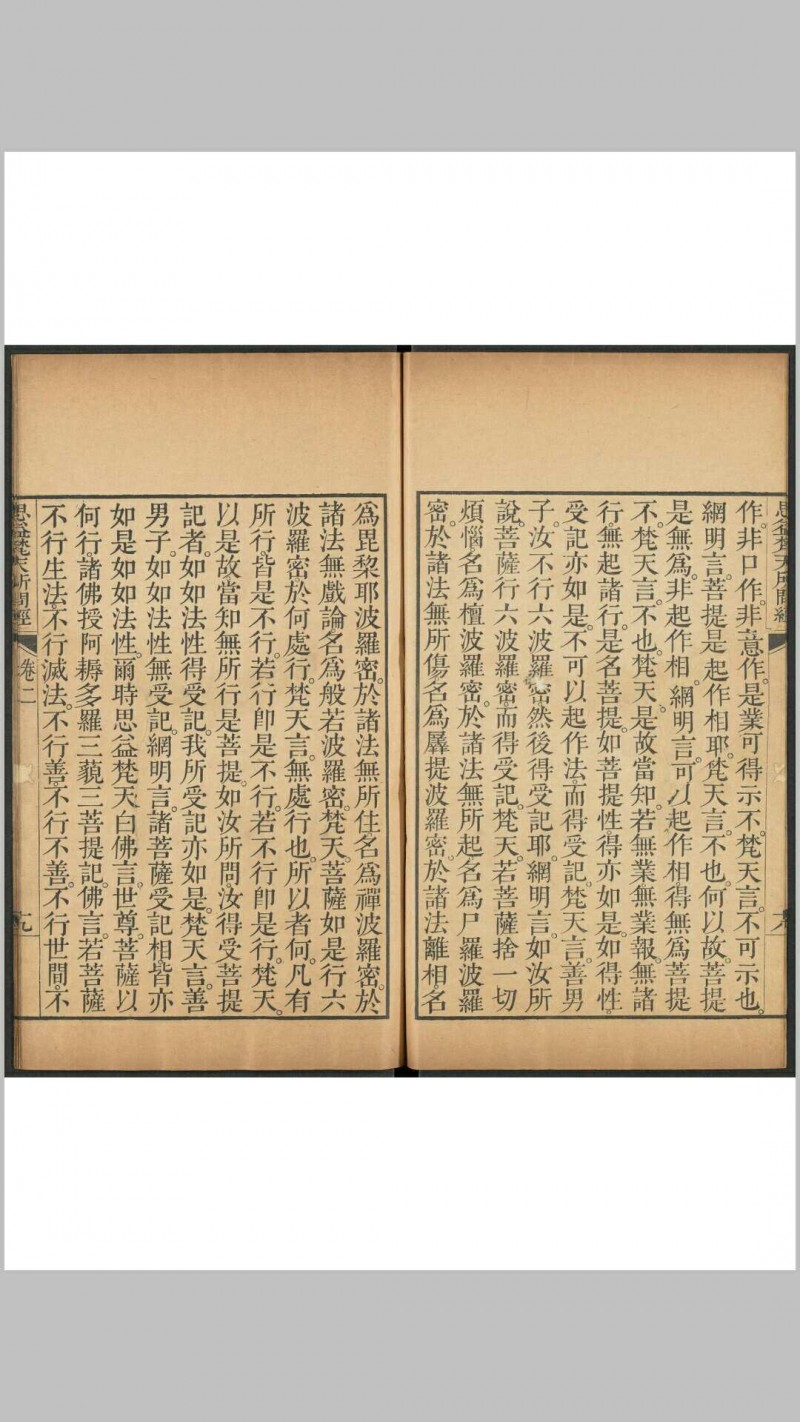 思益梵天所問經
作。非口作。非意作。是業可得示不。梵天言。不可示也。
網明言。菩提是起作相耶。梵天言。不也。何以故。菩提
是無爲。非起作相。網明言。可以起作相得無爲菩提
不。梵天言。不也。梵天。是故當知。若無業無業報。無諸
行。無起諸行。是名菩提。如菩提性得亦如是。如得性。
受記亦如是。不可以起作法而得受記。梵天言。善男
子。汝不行六波羅密然後得受記耶。網明言。如汝所
說。菩薩行六波羅密而得受記。梵天。若菩薩捨一切
煩惱名爲檀波羅密。於諸法無所起名爲尸羅波羅
密。於諸法無所傷名爲羼提波羅密。於諸法離相名
爲毘黎耶波羅密。於諸法無所住名爲禪波羅密。於
諸法無戲論名爲般若波羅密。梵天。菩薩如是行六
波羅密於何處行。梵天言。無處行也。所以者何。凡有
所行。皆是不行。若行卽是不行。若不行卽是行。梵天。
以是故當知無所行是菩提。如汝所問。汝得受菩提
記者。如如法性得受記。我所受記亦如是。梵天言。善
男子。如如法性無受記。網明言。諸菩薩受記相皆亦
如是如如法性。爾時思益梵天白佛言。世尊。菩薩以
何行。諸佛授阿耨多羅三藐三菩提記。佛言。若菩薩
不行生法。不行滅法。不行善。不行不善。不行世間。不
思益梵天所問經
卷二
九